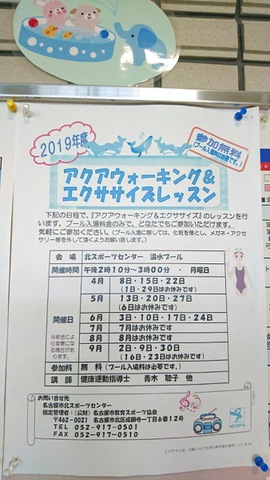 2019年度
参加無料
(プール入場料は必要です。)
アクアウォーキング&
エクササイズレッスン
下記の日程で、『アクアウォーキング&エクササイズ』のレッスンを行
います。プール入場料金のみで、どなたでもご参加いただけます。
気軽にご参加ください。(プール入場に際しては、化粧を落とし、メガネ・アクセ
サリー等を外して頂くようお願い致します。)
会 場 北スポーツセンター 温水プール
開催時間 午後2時10分~3時00分 ・ 月曜日
開催日
※都合によ
り変更にな
る場合があ
ります。
4月 8日・15日・22日
(1日・29日はお休みです)
5月 13日・20日・27日
(6日はお休みです)
6月 3日・10日・17日・24日
7月 7月はお休みです
8月 8月はお休みです
9月 2日・9日・30日
(16日・23日はお休みです)
参加料 無 料 (プール入場料は必要です。)
講 師 健康運動指導士 青木 聡子 他
お問い合せ先
名古屋市北スポーツセンター
指定管理者:(公財)名古屋市教育スポーツ協会
〒462-0021 名古屋市北区成願寺一丁目6番12号
TEL 052-917-0501
FAX 052-917-0510
NESPA